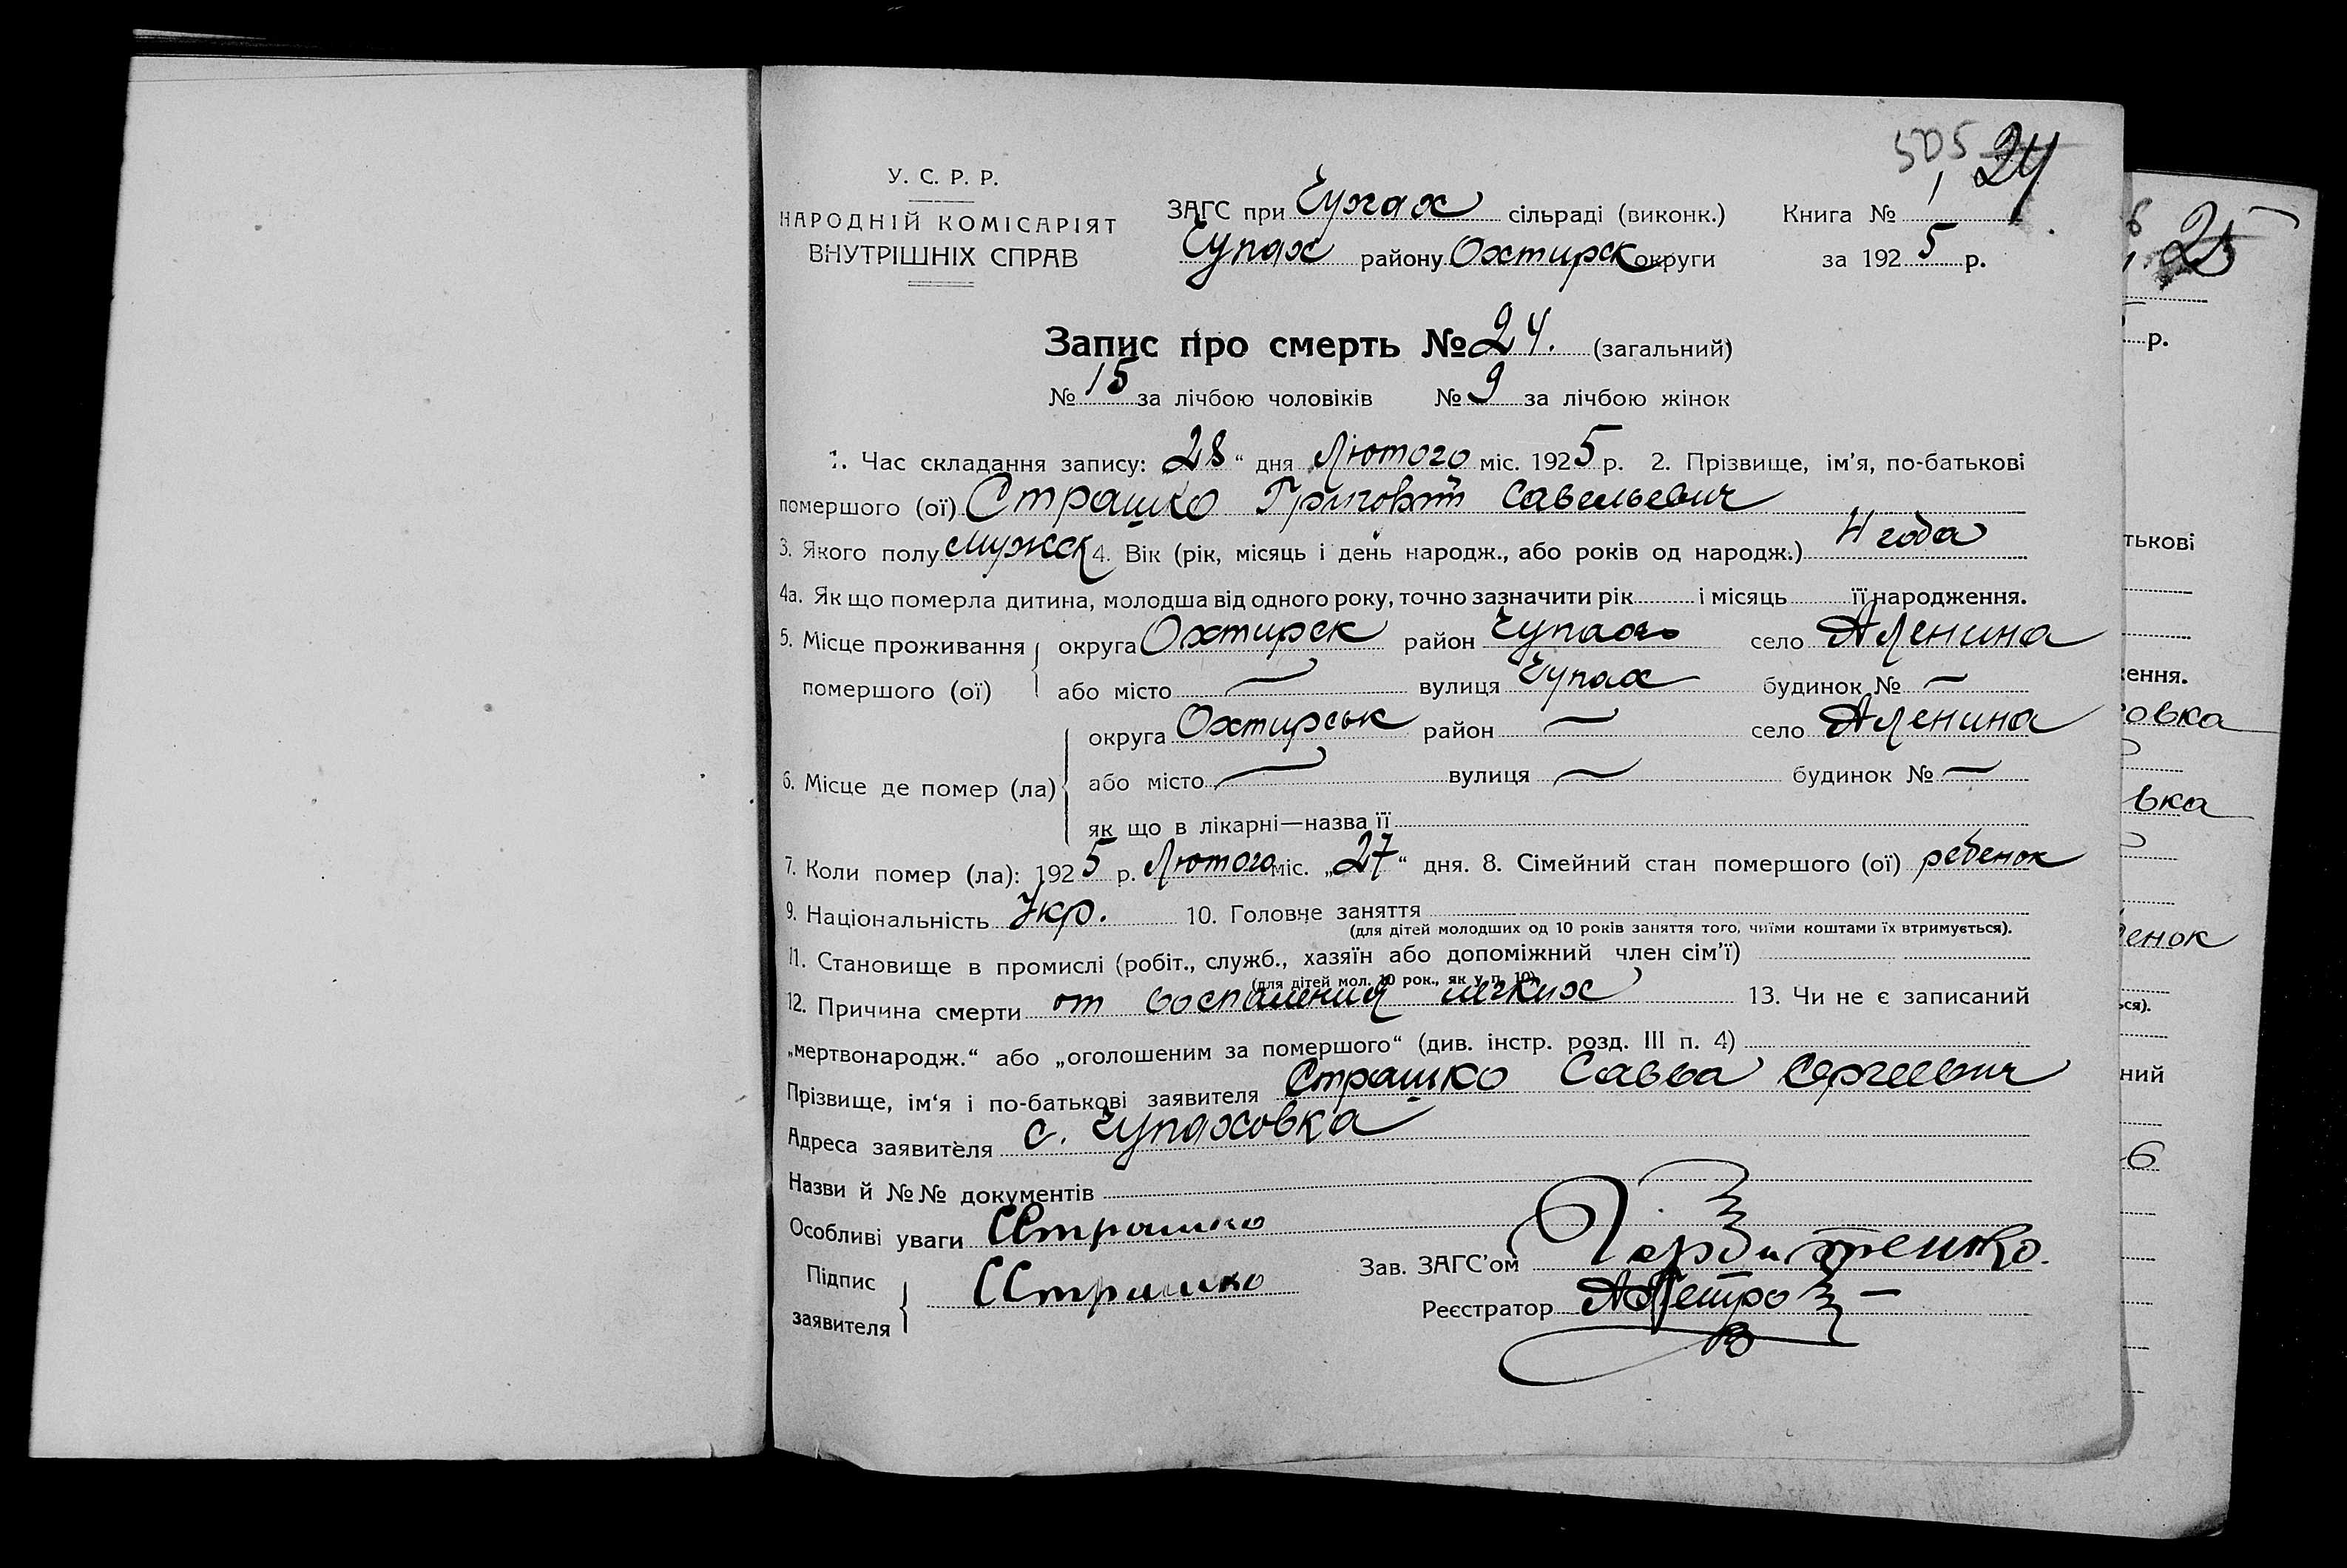 505 24
У. С. Р. Р.
НАРОДНІЙ КОМІСАРІЯТ
ВНУТРІШНІХ СПРАВ
ЗАГС при Чупах сільраді (виконк.) Книга № 1
Чупах району Охтирск округи за 1925 р.
Запис про смерть № 24. (загальний)
№ 15 за лічбою чоловіків № 9 за лічбою жінок
1. Час складання запису: 28 “ дня Лютого міс. 1925 р. 2. Прізвище, ім’я, по-батькові
помершого (ої) Страшко Григорій Савельевич
3. Якого полу мужск 4. Вік (рік, місяць і день народж., або років од народж.) 4 года
4а. Як що померла дитина, молодша від одного року, точно зазначити рік і місяць її народження.
5. Місце проживання помершого (ої) округа Охтирск район Чупах село Аленина
або місто — вулиця Чупах будинок № —
6. Місце де помер (ла) округа Охтирськ район — село Аленина
або місто — вулиця — будинок № —
як що в лікарні—назва її
7. Коли помер (ла): 1925 р. Лютого міс. „27“ дня. 8. Сімейний стан помершого (ої) ребенок
9. Національність Укр. 10. Головне заняття
(для дітей молодших од 10 років заняття того, чиїми коштами їх втримується).
11. Становище в промислі (робіт., служб., хазяїн або допоміжний член сім’ї)
(для дітей мол. 10 рок., як у п. 10).
12. Причина смерти от воспаления легких 13. Чи не є записаний
„мертвонародж.“ або „оголошеним за помершого“ (див. інстр. розд. III п. 4)
Прізвище, ім’я і по-батькові заявителя Страшко Савва Сергеевич
Адреса заявителя с. Чупаховка
Назви й №№ документів
Особливі уваги ССтрашко
Підпис заявителя ССтрашко
Зав. ЗАГС’ом
Реєстратор АПетро
25
р.
тькові
ення.
овка
вка
енок
ься).
ний
6